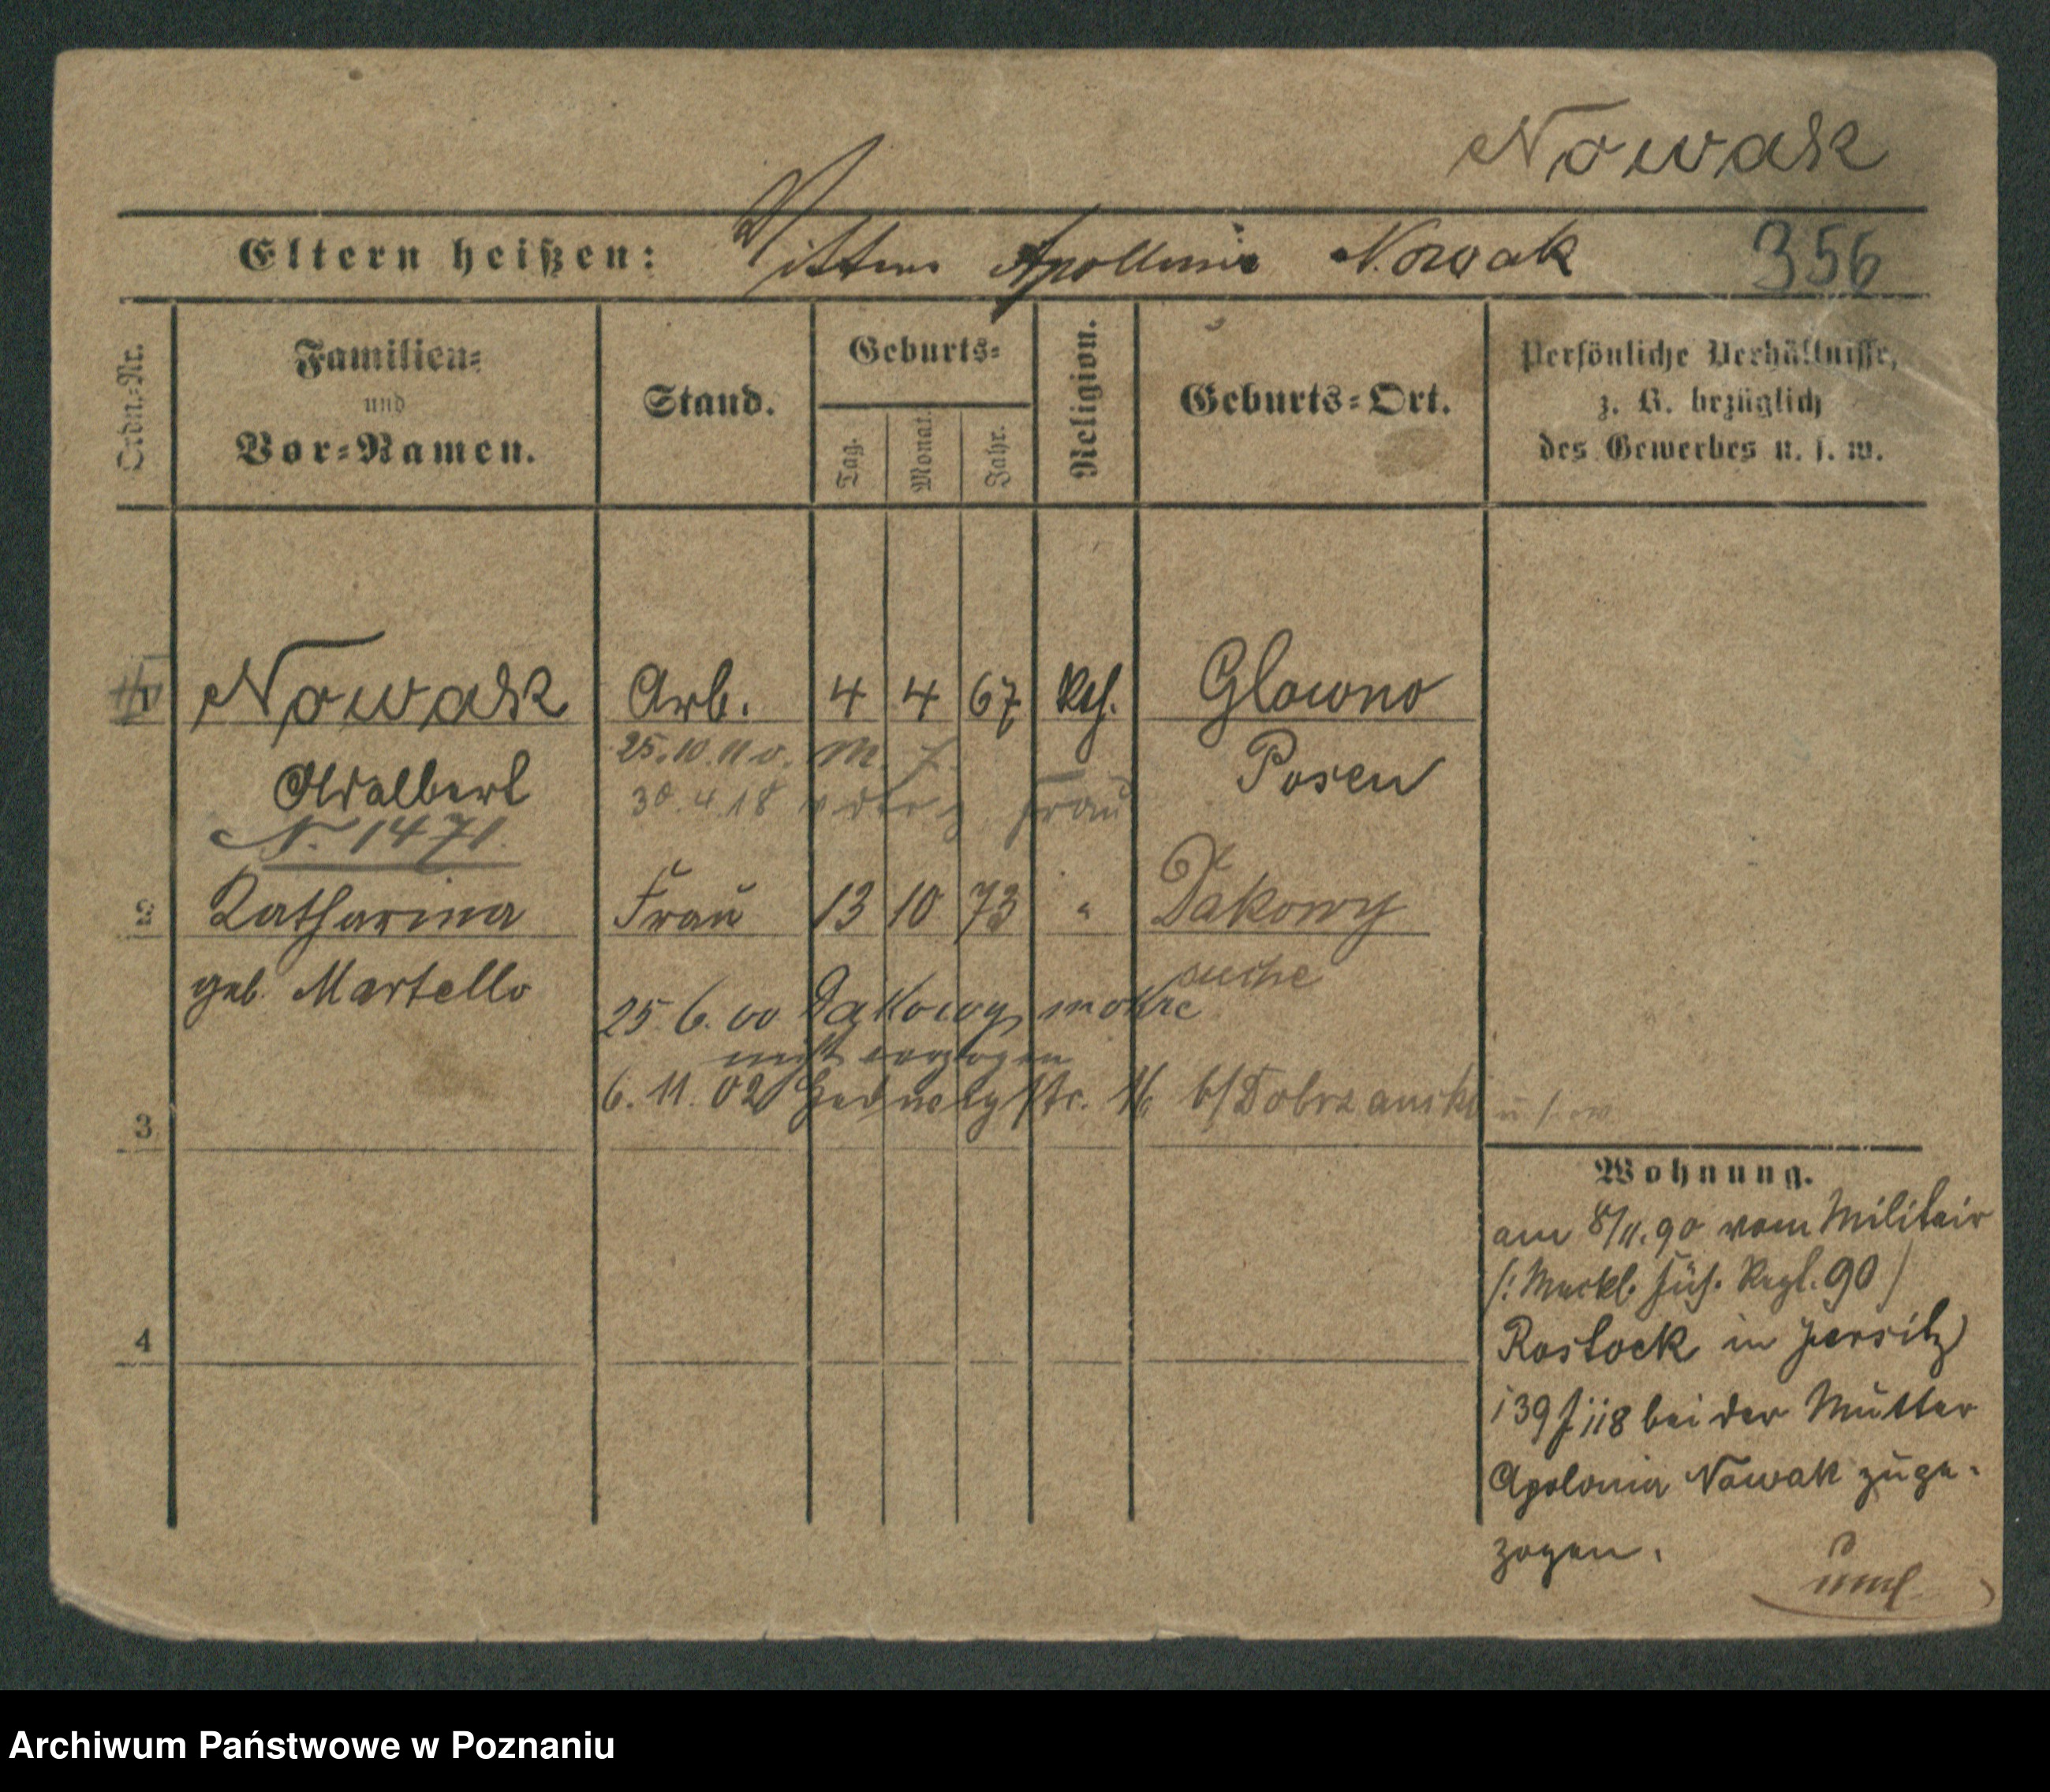 Nowak
Eltern heißen: Apollonia Nowak 356
Ordn.-Nr.
Familien-
und
Vor-Namen.
Stand.
Geburts-
Tag.
Monat.
Jahr.
Religion.
Geburts-Ort.
Persönliche Verhältnisse,
z. B. bezüglich
des Gewerbes u. s. w.
1 Nowak Arb. 4 4 67 kth. Glowno
Adalbert Posen
25.10.11
30.4.18 Frau
N. 1471.
2 Katharina Frau 13 10 73 " Dakowy
geb. Martello suche
25 6. 00 Dakowy mokre
nicht verzogen
6. 11. 02 Hedwigstr. 16 b/Dobrzanski
3
4
Wohnung.
am 8/11.90 vom Militair
/: Meckl. Füs. Regt. 90 /
Rostock in Jersitz
bei der Mutter
Apolonia Nowak zuge-
zogen.
Archiwum Państwowe w Poznaniu